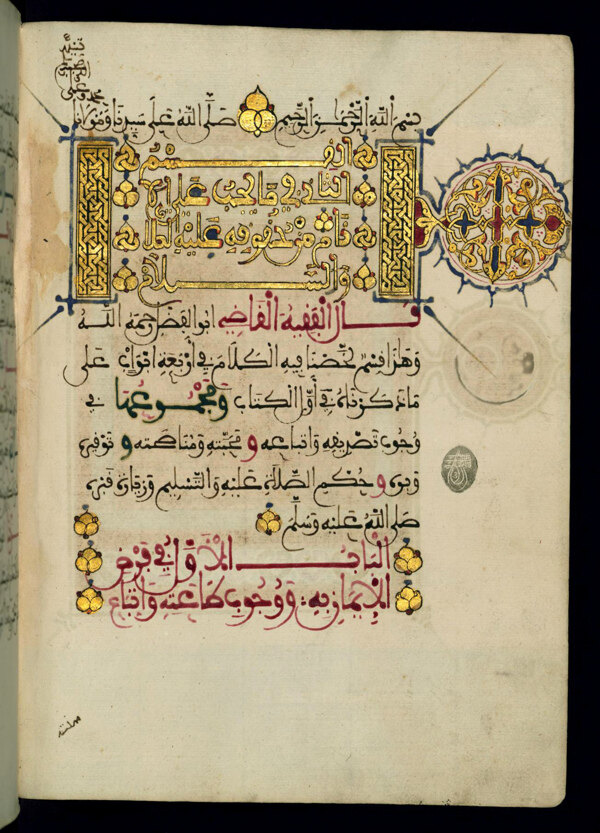 بسم الله الرحمن الرحيم صلى الله على سيدنا ومولانا
القسم
الثاني في ما يجب على الا
نام من حقوقه عليه الصلاة
والسلام
قال الفقيه القاضي ابو الفضل رحمه الله
وهذا قسم لخصنا فيه الكلام في أربعة ابواب على
ما ذكرناه في أول الكتاب ومجموعها في
وجوب تصديقه واتباعه و محبته ومناصحته و توقيره
وبره و حكم الصلاة عليه والتسليم وزيارة قبره
صلى الله عليه وسلم
الباب الأول في فرض
الايمان به ووجوب طاعته واتباع